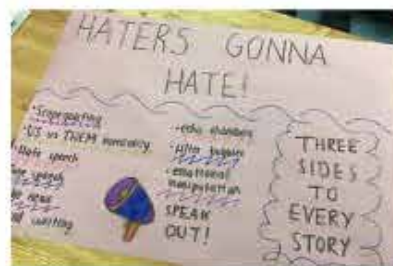 HATERS GONNA
HATE!
·Scapegoating
·US vs THEM mentality
·Hate speech
speech
news
·echo chambers
·filter bubbles
·emotional
manipulation
SPEAK
OUT!
THREE
SIDES
TO
EVERY
STORY